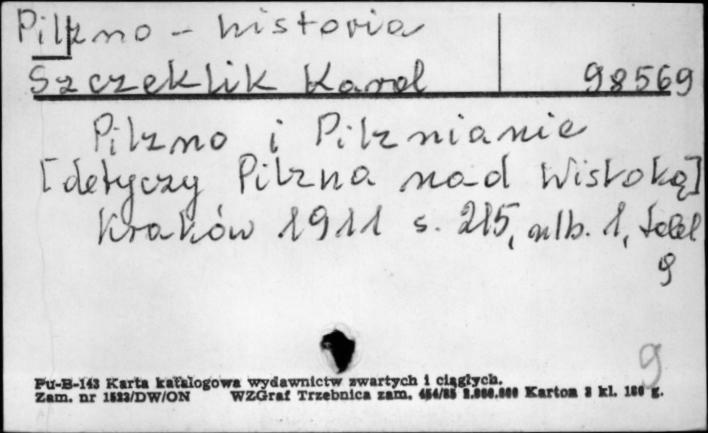 Pilzno - historia
Szczeklik Karol 98569
Pilzno i Pilznianie
[dotyczy Pilzna nad Wisłoką]
Kraków 1911 s. 215, nlb. 1, tabl
9
9
Pu-B-143 Karta katalogowa wydawnictw zwartych i ciągłych.
Zam. nr 1523/DW/ON WZGraf Trzebnica zam. 454/85 2.000.000 Karton 3 kl. 180 g.